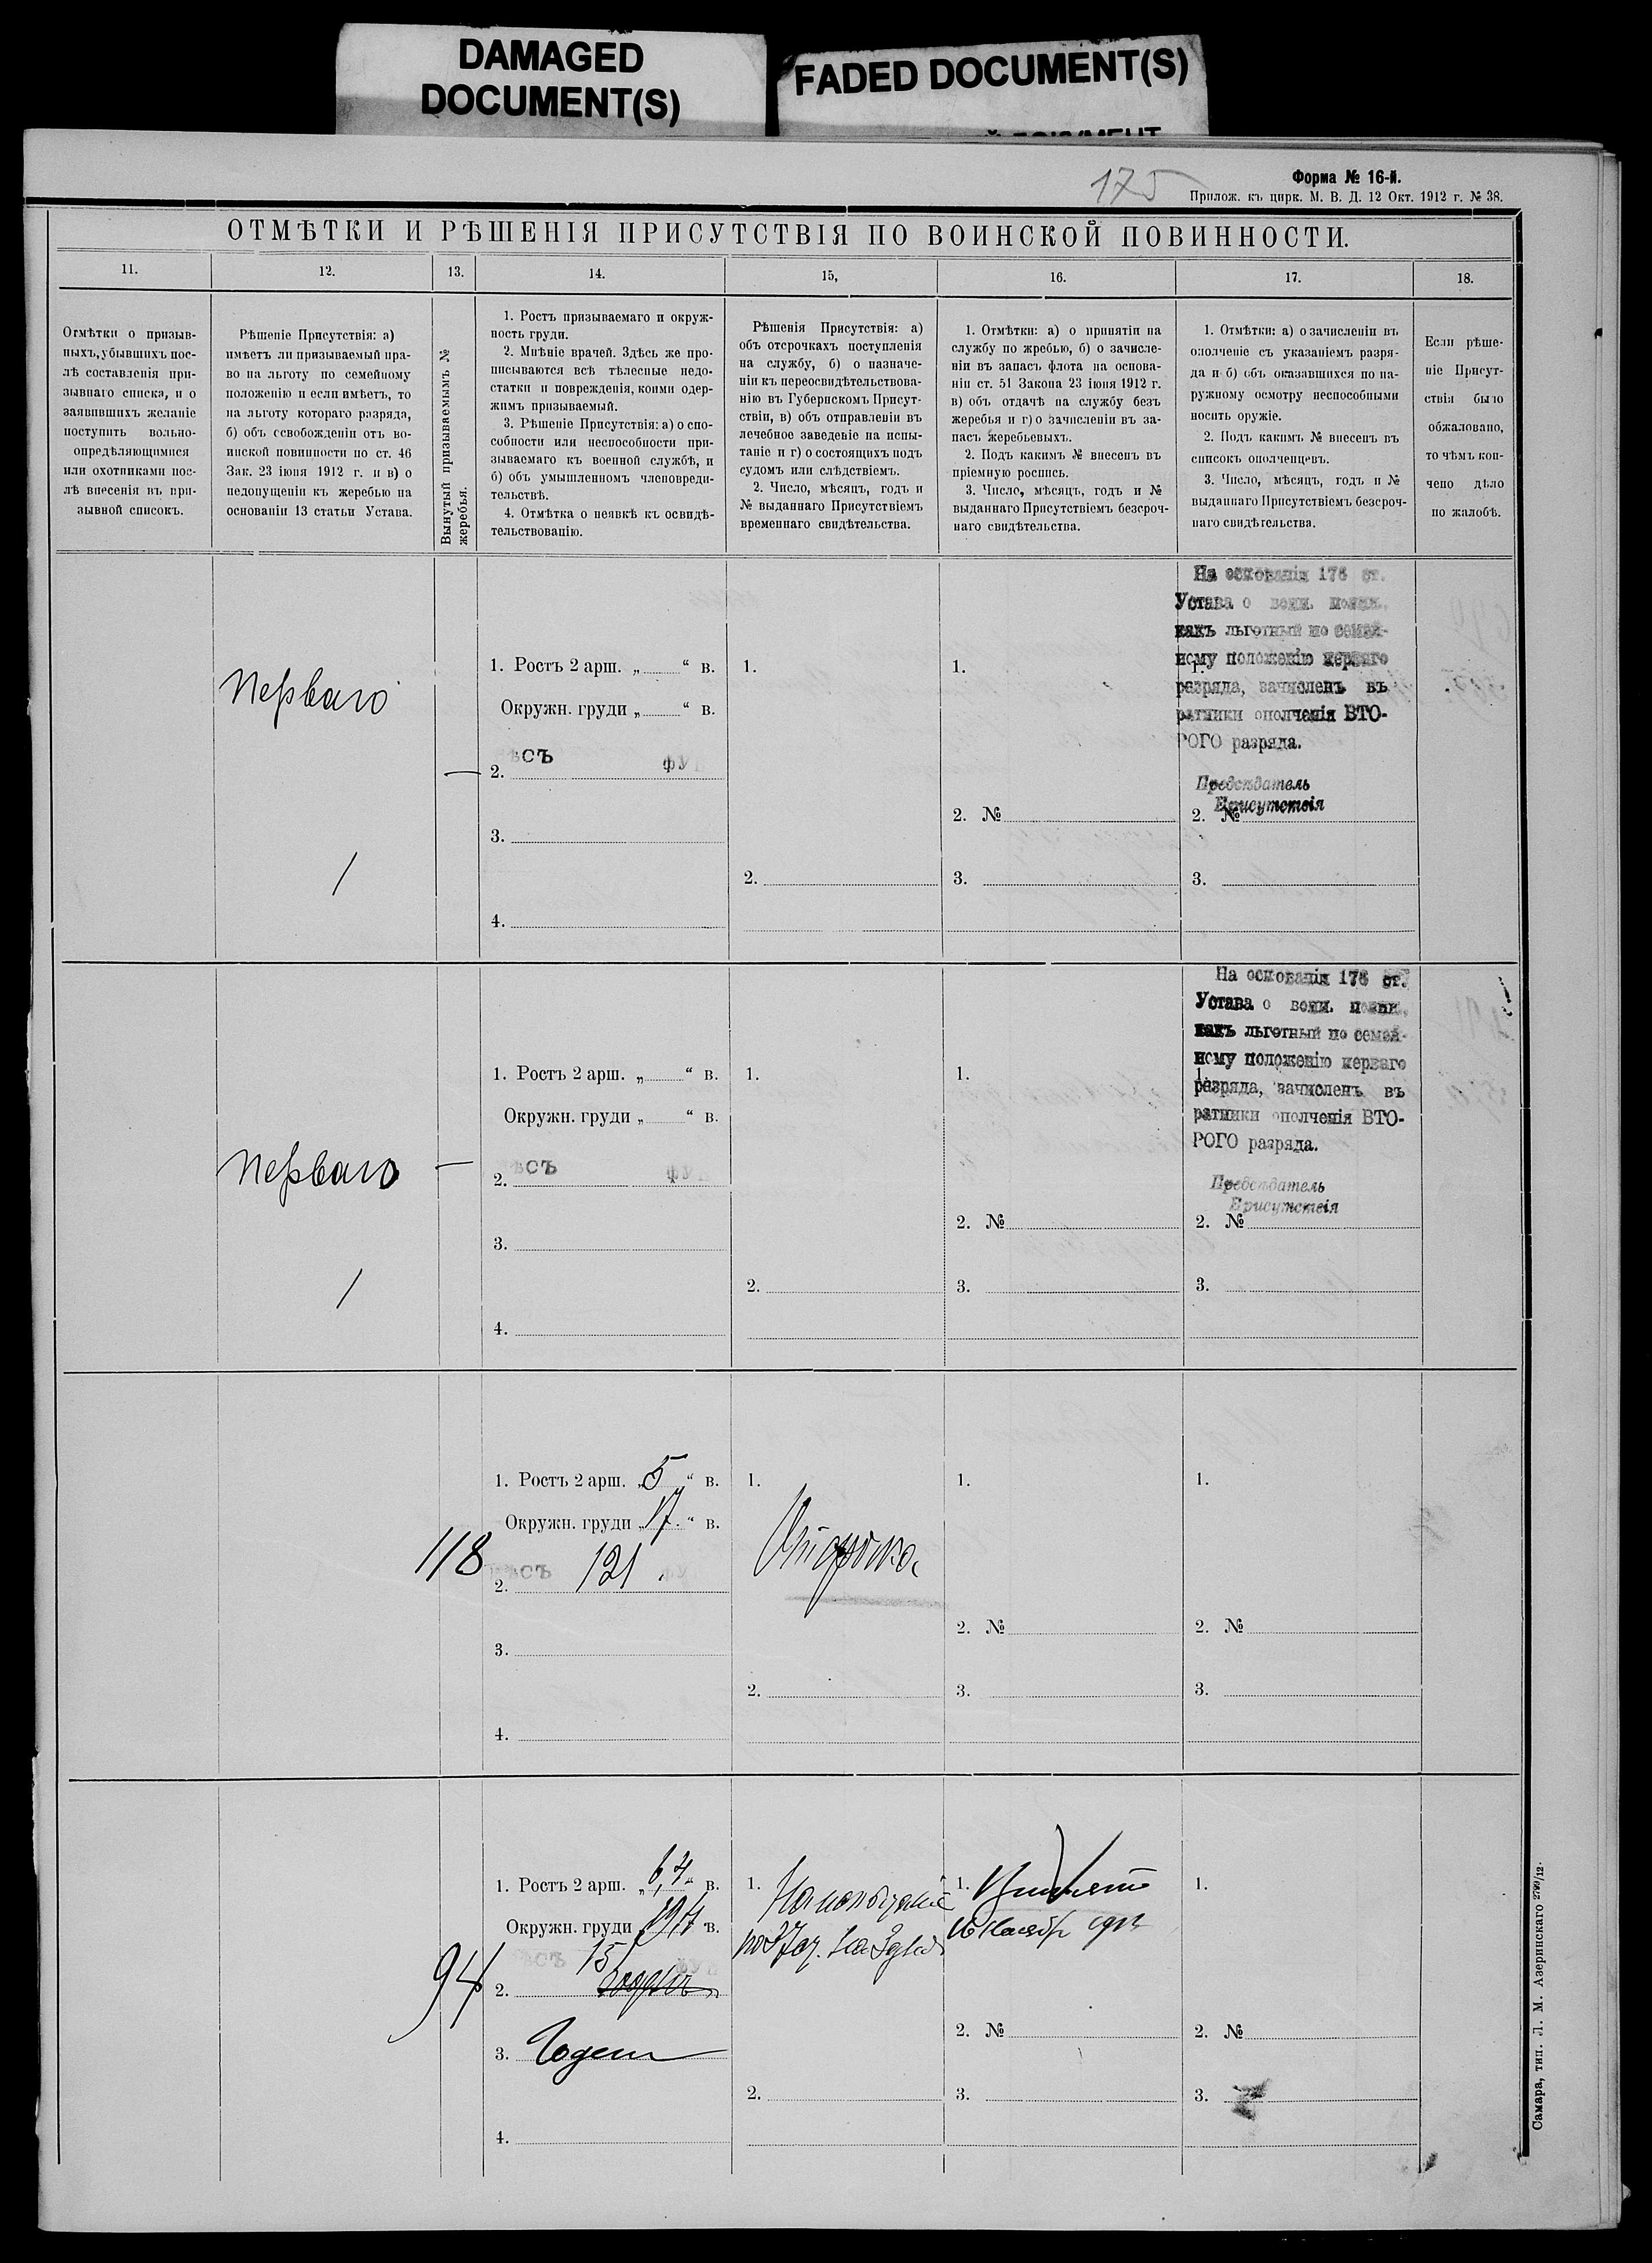 DAMAGED
DOCUMENT(S)
FADED DOCUMENT(S)
175
Форма № 16-й.
Прилож. къ цирк. М. В. Д. 12 Окт. 1912 г. № 38.
ОТМѢТКИ И РѢШЕНІЯ ПРИСУТСТВІЯ ПО ВОИНСКОЙ ПОВИННОСТИ.
11.
12.
13.
14.
15,
16.
17.
18.
Отмѣтки о призыв-
ныхъ, убывшихъ пос-
лѣ составленія при-
зывнаго списка, и о
заявившихъ желаніе
поступить вольно-
опредѣляющимися
или охотниками пос-
лѣ внесенія въ при-
зывной списокъ.
Рѣшеніе Присутствія: а)
имѣетъ ли призываемый пра-
во на льготу по семейному
положенію и если имѣетъ, то
на льготу котораго разряда,
б) объ освобожденіи отъ во-
инской повинности по ст. 46
Зак. 23 іюня 1912 г. и в) о
недопущеніи къ жеребью на
основаніи 13 статьи Устава.
Вынутый призываемымъ №
жеребья.
1. Ростъ призываемаго и окруж-
ность груди.
2. Мнѣніе врачей. Здѣсь же про-
писываются всѣ тѣлесные недо-
статки и поврежденія, коими одер-
жимъ призываемый.
3. Рѣшеніе Присутствія: а) о спо-
собности или неспособности при-
зываемаго къ военной службѣ, и
б) объ умышленномъ членовреди-
тельствѣ.
4. Отмѣтка о неявкѣ къ освидѣ-
тельствованію.
Рѣшенія Присутствія: а)
объ отсрочкахъ поступленія
на службу, б) о назначе-
ніи къ переосвидѣтельствова-
нію въ Губернскомъ Присут-
ствіи, в) объ отправленіи въ
лечебное заведеніе на испы-
таніе и г) о состоящихъ подъ
судомъ или слѣдствіемъ.
2. Число, мѣсяцъ, годъ и
№ выданнаго Присутствіемъ
временнаго свидѣтельства.
1. Отмѣтки: а) о принятіи на
службу по жребью, б) о зачисле-
ніи въ запасъ флота на основа-
ніи ст. 51 Закона 23 іюня 1912 г.
в) объ отдачѣ на службу безъ
жеребья и г) о зачисленіи въ за-
пасъ жеребьевыхъ.
2. Подъ какимъ № внесенъ въ
пріемную роспись.
3. Число, мѣсяцъ, годъ и №
выданнаго Присутствіемъ безсроч-
наго свидѣтельства.
1. Отмѣтки: а) о зачисленіи въ
ополченіе съ указаніемъ разря-
да и б) объ оказавшихся по на-
ружному осмотру неспособными
носить оружіе.
2. Подъ какимъ № внесенъ въ
списокъ ополченцевъ.
3. Число, мѣсяцъ, годъ и №
выданнаго Присутствіемъ безсроч-
наго свидѣтельства.
Если рѣше-
ніе Присут-
ствія было
обжаловано,
то чѣмъ кон-
чено дѣло
по жалобѣ.
Перваго
/
1. Ростъ 2 арш. „ “ в.
Окружн. груди „ “ в.
ѣсъ фун
2.
3.
4.
1.
2.
1.
2. №
3.
На основаніи 176 ст.
Устава о воин. повин.
какъ льготный по семей-
ному положенію перваго
разряда, зачисленъ въ
ратники ополченія ВТО-
РОГО разряда.
Предсѣдатель
Присутствія
1.
2. №
3.
Перваго
/
1. Ростъ 2 арш. „ “ в.
Окружн. груди „ “ в.
ѣсъ фун
2.
3.
4.
1.
2.
1.
2. №
3.
На основаніи 176 ст.
Устава о воин. повин.
какъ льготный по семей-
ному положенію перваго
разряда, зачисленъ въ
ратники ополченія ВТО-
РОГО разряда.
Предсѣдатель
Присутствія
1.
2. №
3.
118
1. Ростъ 2 арш. „ 5 “ в.
Окружн. груди „ 17 “ в.
ѣсъ 121
2.
3.
4.
1.
Отсрочка
2.
1.
2. №
3.
1.
2. №
3.
94
1. Ростъ 2 арш. „ 6,4 “ в.
Окружн. груди в.
2.
3. Годенъ
4.
1. На испытаніе
2.
1. Принятъ
16 Ноября
2. №
3.
1.
2. №
3.
Самара, тип. Л. М. Азеринскаго 2799/12.